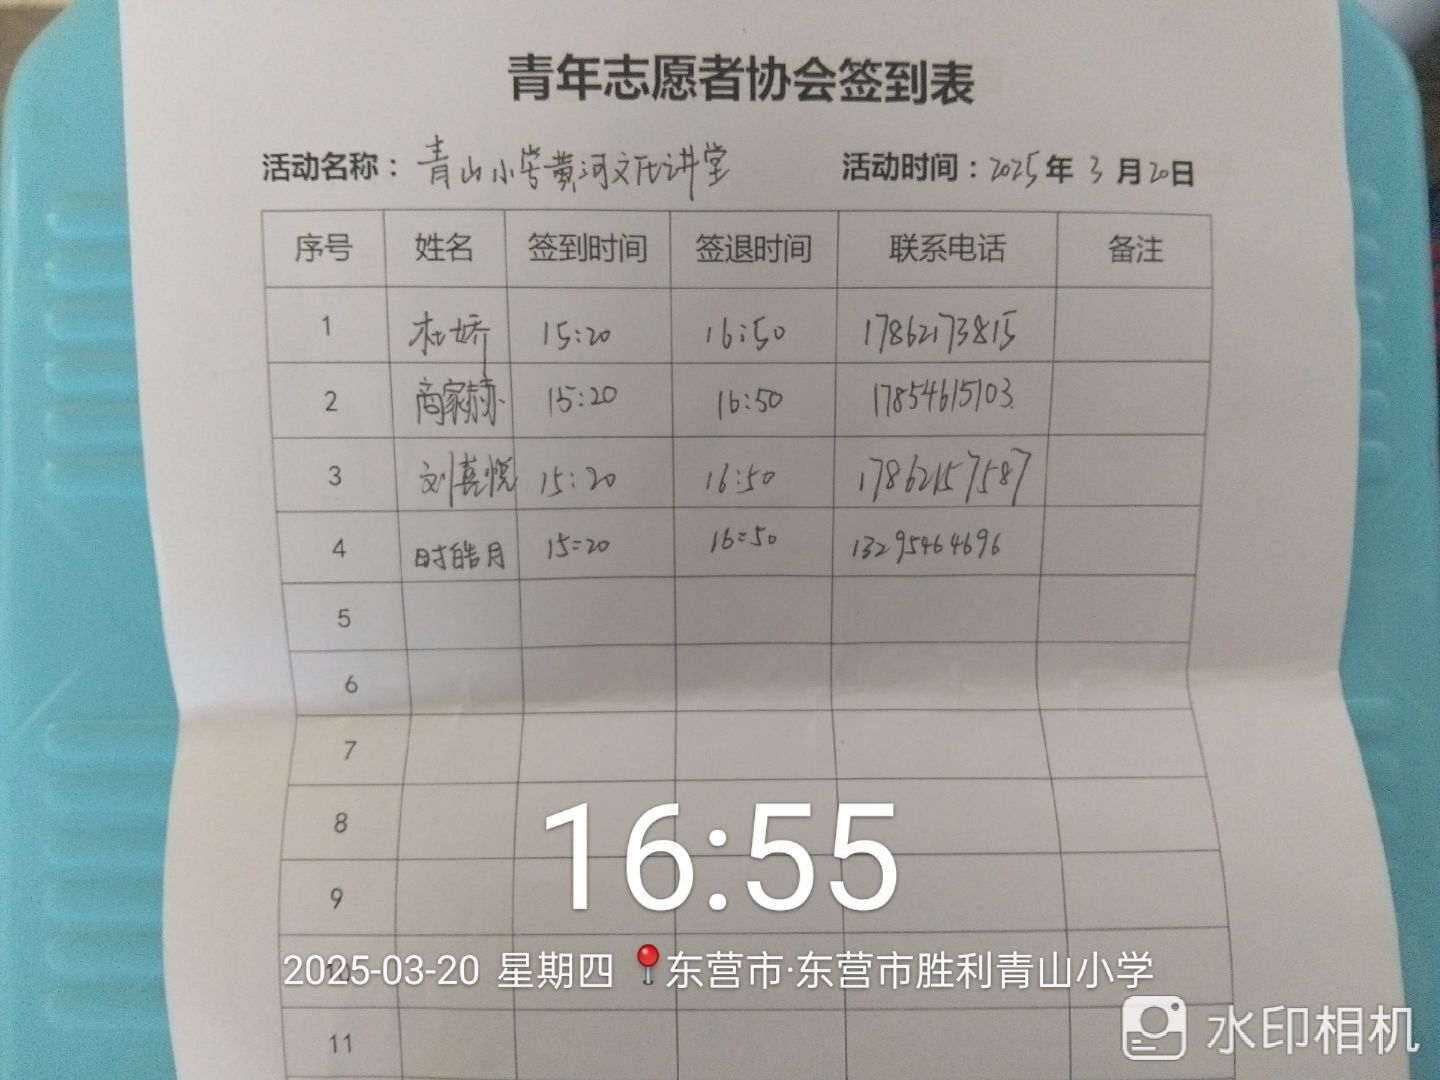 青年志愿者协会签到表
活动名称：青山小学黄河文化讲堂 活动时间：2025年3月20日
序号 姓名 签到时间 签退时间 联系电话 备注
1 杜娇 15:20 16:50 17862173815
2 商家赫 15:20 16:50 17854615103
3 刘喜悦 15:20 16:50 17862157587
4 时皓月 15:20 16:50 13295464696
5
6
7
8
9
10
11
16:55
2025-03-20 星期四 东营市·东营市胜利青山小学
水印相机